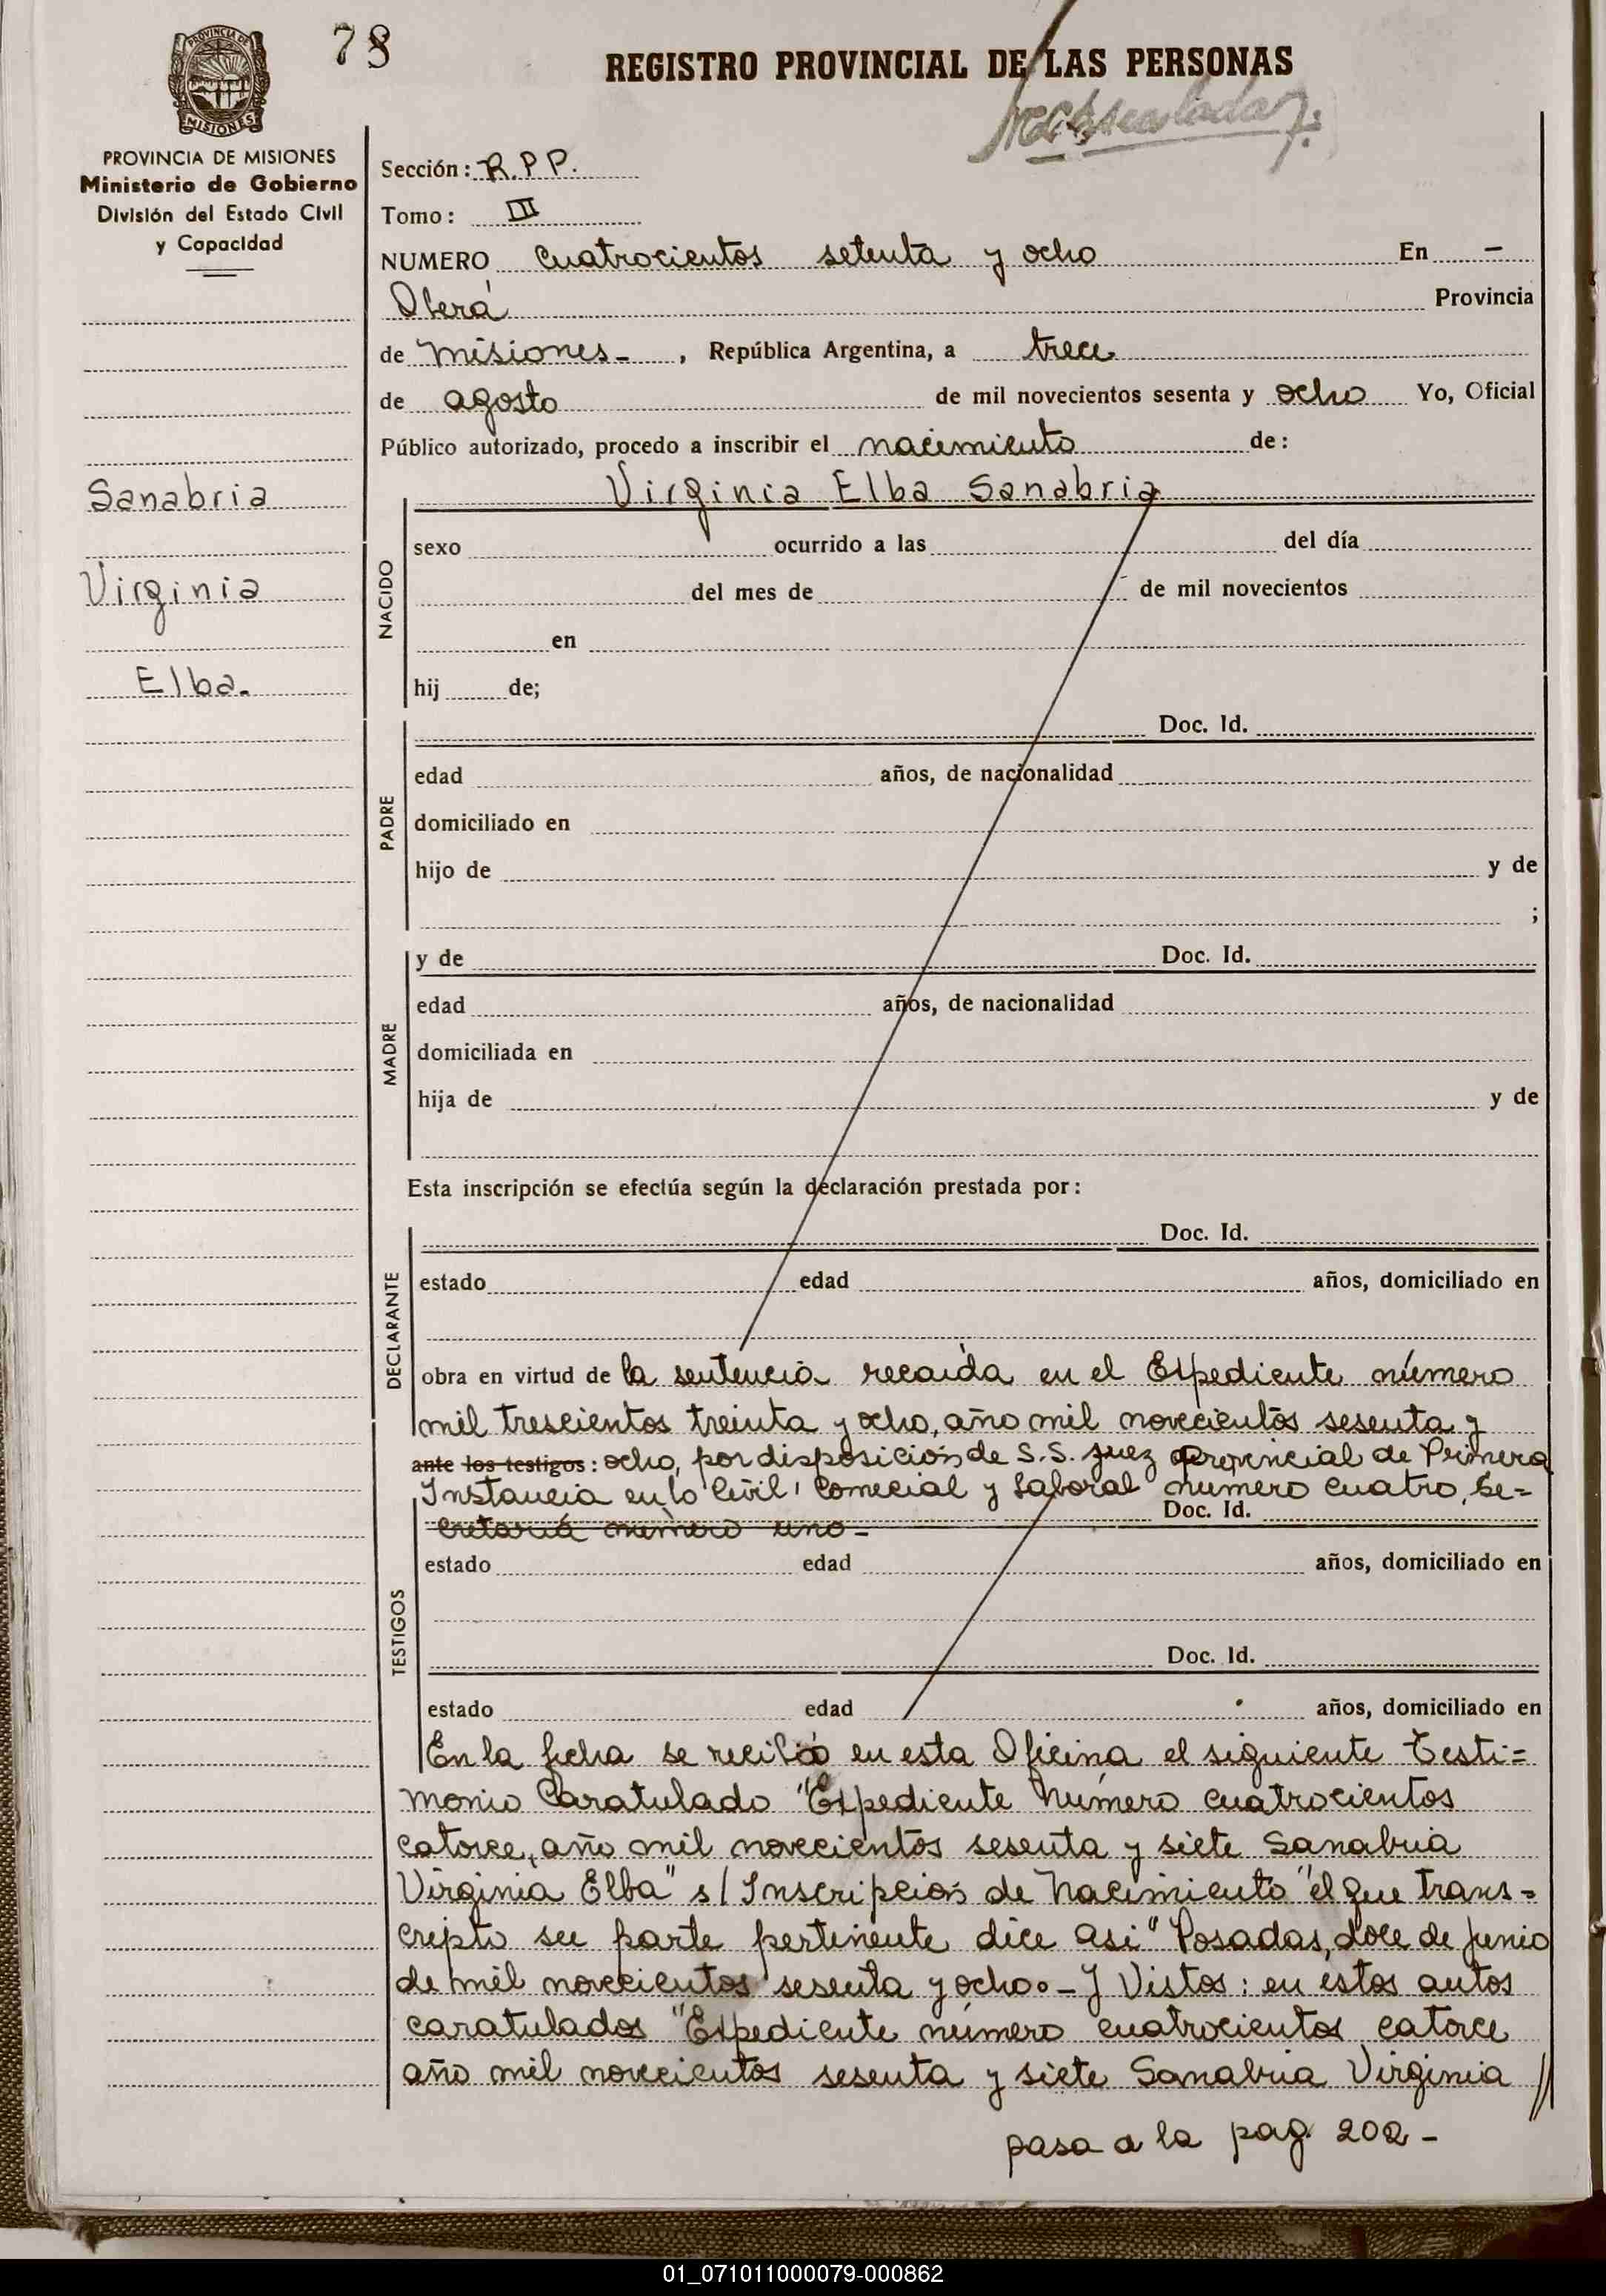 78
REGISTRO PROVINCIAL DE LAS PERSONAS
PROVINCIA DE MISIONES
Ministerio de Gobierno
División del Estado Civil
y Capacidad
Sanabria
Virginia
Elba.
Sección: R.P.P.
Tomo: III
NUMERO cuatrocientos setenta y ocho En -
Oberá Provincia
de misiones-, República Argentina, a trece
de agosto de mil novecientos sesenta y ocho Yo, Oficial
Público autorizado, procedo a inscribir el nacimiento de:
NACIDO
Virginia Elba Sanabria
sexo ocurrido a las del día
del mes de de mil novecientos
en
hij de;
PADRE
Doc. Id.
edad años, de nacionalidad
domiciliado en
hijo de y de
;
MADRE
y de Doc. Id.
edad años, de nacionalidad
domiciliada en
hija de y de
Esta inscripción se efectúa según la declaración prestada por:
DECLARANTE
Doc. Id.
estado edad años, domiciliado en
obra en virtud de la sentencia recaída en el Expediente número
mil trescientos treinta y ocho, año mil novecientos sesenta y
ante los testigos: ocho, por disposición de S.S. Juez Provincial de Primera
Instancia en lo Civil, Comecial y Laboral numero cuatro, Se=
cretaria número uno- Doc. Id.
TESTIGOS
estado edad años, domiciliado en
Doc. Id.
estado edad años, domiciliado en
En la fecha se recibió en esta Oficina el siguiente Testi=
monio Caratulado "Expediente Número cuatrocientos
catorce, año mil novecientos sesenta y siete Sanabria
Virginia Elba" s/ Inscripción de Nacimiento "el que trans=
cripto su parte pertinente dice asi" Posadas, doce de Junio
de mil novecientos sesenta y ocho.- Y Vistos: en éstos autos
caratulados "Expediente número cuatrocientos catorce
año mil novecientos sesenta y siete Sanabria Virginia //
pasa a la pag. 202-
01_071011000079-000862